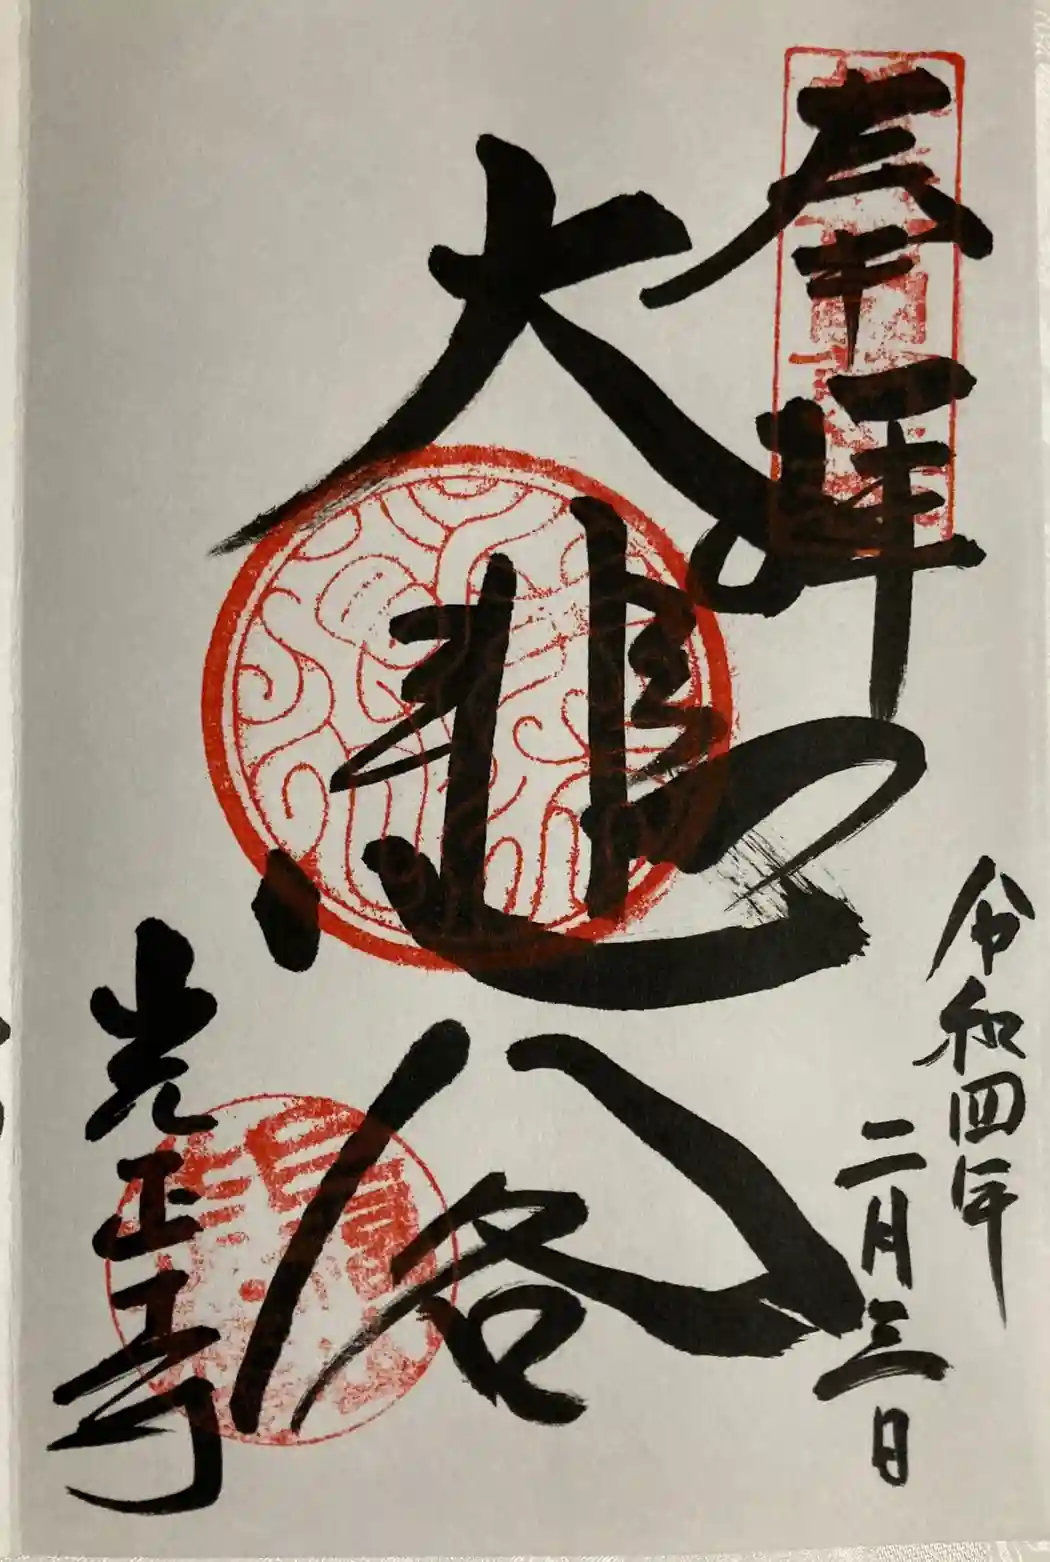 奉拝
令和四年
二月三日
大悲閣
光正寺